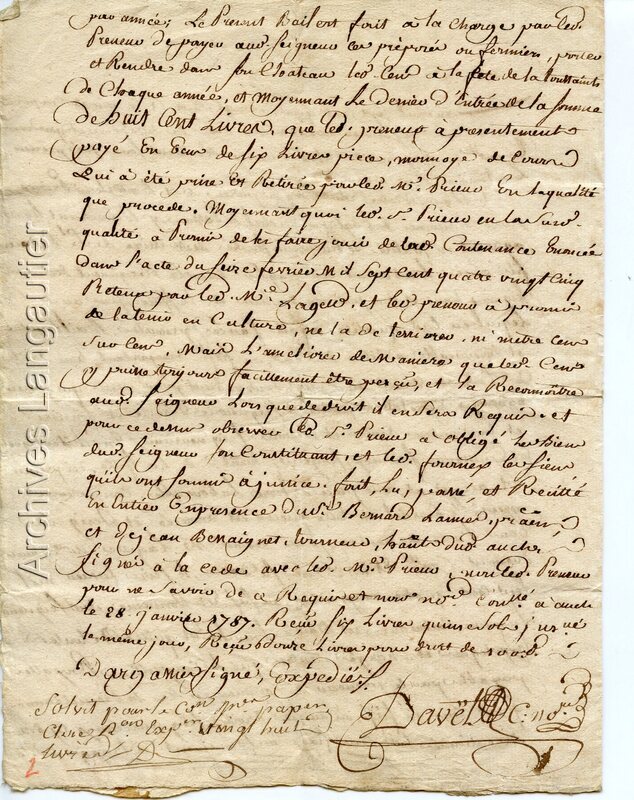 par année; Le Present Bail est fait à la charge par led.
Preneur de payer aud. Seigneur ces préposés ou fermiers, porter
et Rendre dans son Chateau led. Cens à la fete de la toussaints
de Chaque année, et Moyennant Le denier d'Entrée de la somme
de huit Cent Livres, que led. preneur à presentement
payé En Ecus de six Livres piece, monnoye de Cours
Qui à été prise Et Retirée par led. Mr. Prieur En la qualité
que procede. Moyennant quoi led. Sr. Prieur en la Susd.
qualité à Promis de les faire jouir de lad. Contenance Enoncée
dans l'acte du seize fevrier Mil Sept Cent quatre vingt Cinq
Retenu par led. Me. et led. preneur à promis
de la tenir en Culture, ne la de terriorer, ni metre Cens
sur Cens, Mais L'ameliorer de Maniere que led. Cens
y puisse toujours facillement être perçu, et la Reconnoitre
aud. Seigneur Lorsque de droit il en sera Requis. et
pour ce dessus observer led. Sr. Prieur à obligé les Biens
dud. Seigneur son Constituant, et led. les siens
qu'ils ont soumis à justice. fait, Lu, passé, et Recitté
En Entier En presence du Sr. Bernard Lannes,
et de jean Benaignet, tourneur, dud. auch
signé à la cede avec led. Mr. Prieur, non led. Preneur
pour ne savoir de ce Requis et nous nore. à auch
le 28 janvier 1787. Reçu Six Livres quinze sols
le même jour, Reçu douze Livres pour droit de
signé, Expédié
Solvit pour le Con papier
Clerc Expen vingt huit
livres D
Davël C. nore.
2
Archives Langautier